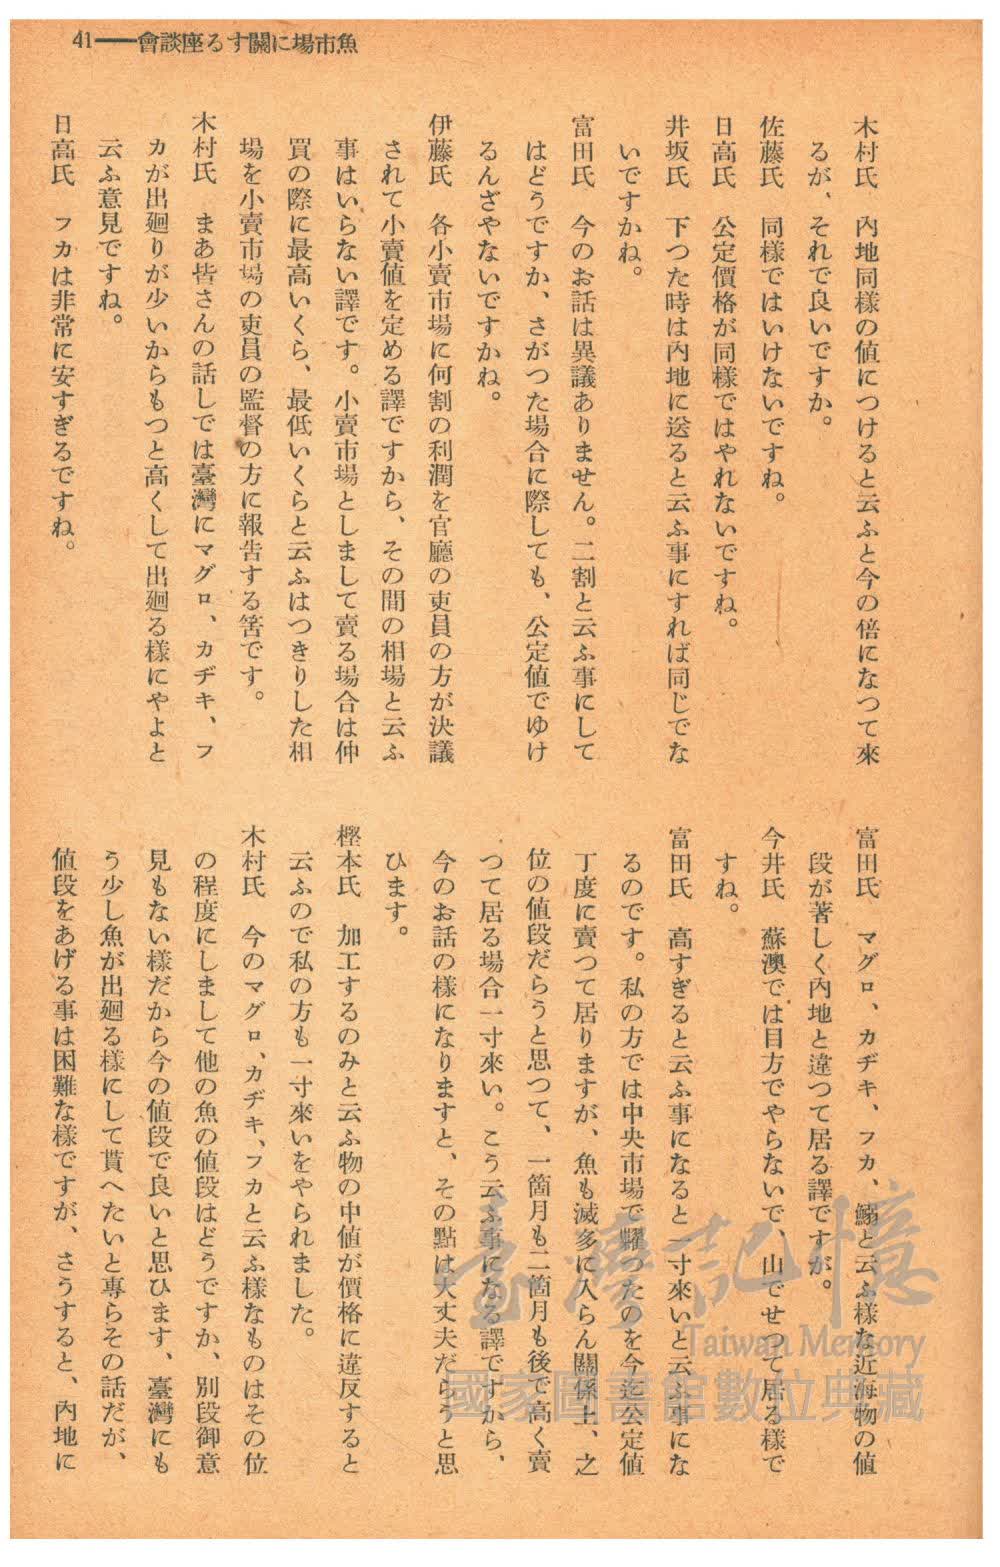 41――會談座るす關に場市魚
木村氏　內地同樣の値につけると云ふと今の倍になつて來
るが、それで良いですか。
佐藤氏　同樣ではいけないですね。
日高氏　公定價格が同樣ではやれないですね。
井坂氏　下つた時は內地に送ると云ふ事にすれば同じでな
いですかね。
富田氏　今のお話は異議ありません。二割と云ふ事にして
はどうですか、さがつた場合に際しても、公定値でゆけ
るんざやないですかね。
伊藤氏　各小賣市場に何割の利潤を官廳の吏員の方が決議
されて小賣値を定める譯ですから、その間の相場と云ふ
事はいらない譯です。小賣市場としまして賣る場合は仲
買の際に最高いくら、最低いくらと云ふはつきりした相
場を小賣市場の吏員の監督の方に報告する筈です。
木村氏　まあ皆さんの話しでは臺灣にマグロ、カヂキ、フ
カが出廻りが少いからもつと高くして出廻る樣にやよと
云ふ意見ですね。
日高氏　フカは非常に安すぎるですね。
富田氏　マグロ、カヂキ、フカ、鰮と云ふ樣な近海物の値
段が著しく內地と違つて居る譯ですが。
今井氏　蘇澳では目方でやらないで、山でせつて居る樣で
すね。
富田氏　高すぎると云ふ事になると一寸來いと云ふ事にな
るのです。私の方では中央市場で糶つたのを今迄公定値
丁度に賣つて居りますが、魚も滅多に入らん關係上、之
位の値段だらうと思つて、一箇月も二箇月も後で高く賣
つて居る場合一寸來い。こう云ふ事になる譯ですから、
今のお話の樣になりますと、その點は大丈夫だらうと思
ひます。
樫本氏　加工するのみと云ふ物の中値が價格に違反すると
云ふので私の方も一寸來いをやられました。
木村氏　今のマグロ、カヂキ、フカと云ふ樣なものはその位
の程度にしまして他の魚の値段はどうですか、別段御意
見もない樣だから今の値段で良いと思ひます、臺灣にも
う少し魚が出廻る樣にして貰へたいと專らその話だが、
値段をあげる事は困難な樣ですが、さうすると、內地に
臺灣記憶
Taiwan Memory
國家圖書館數位典藏